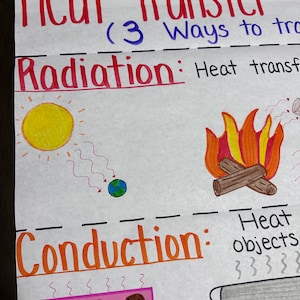 Heat Transfer
(3 Ways to tra
Radiation: Heat transf
Conduction: Heat
objects